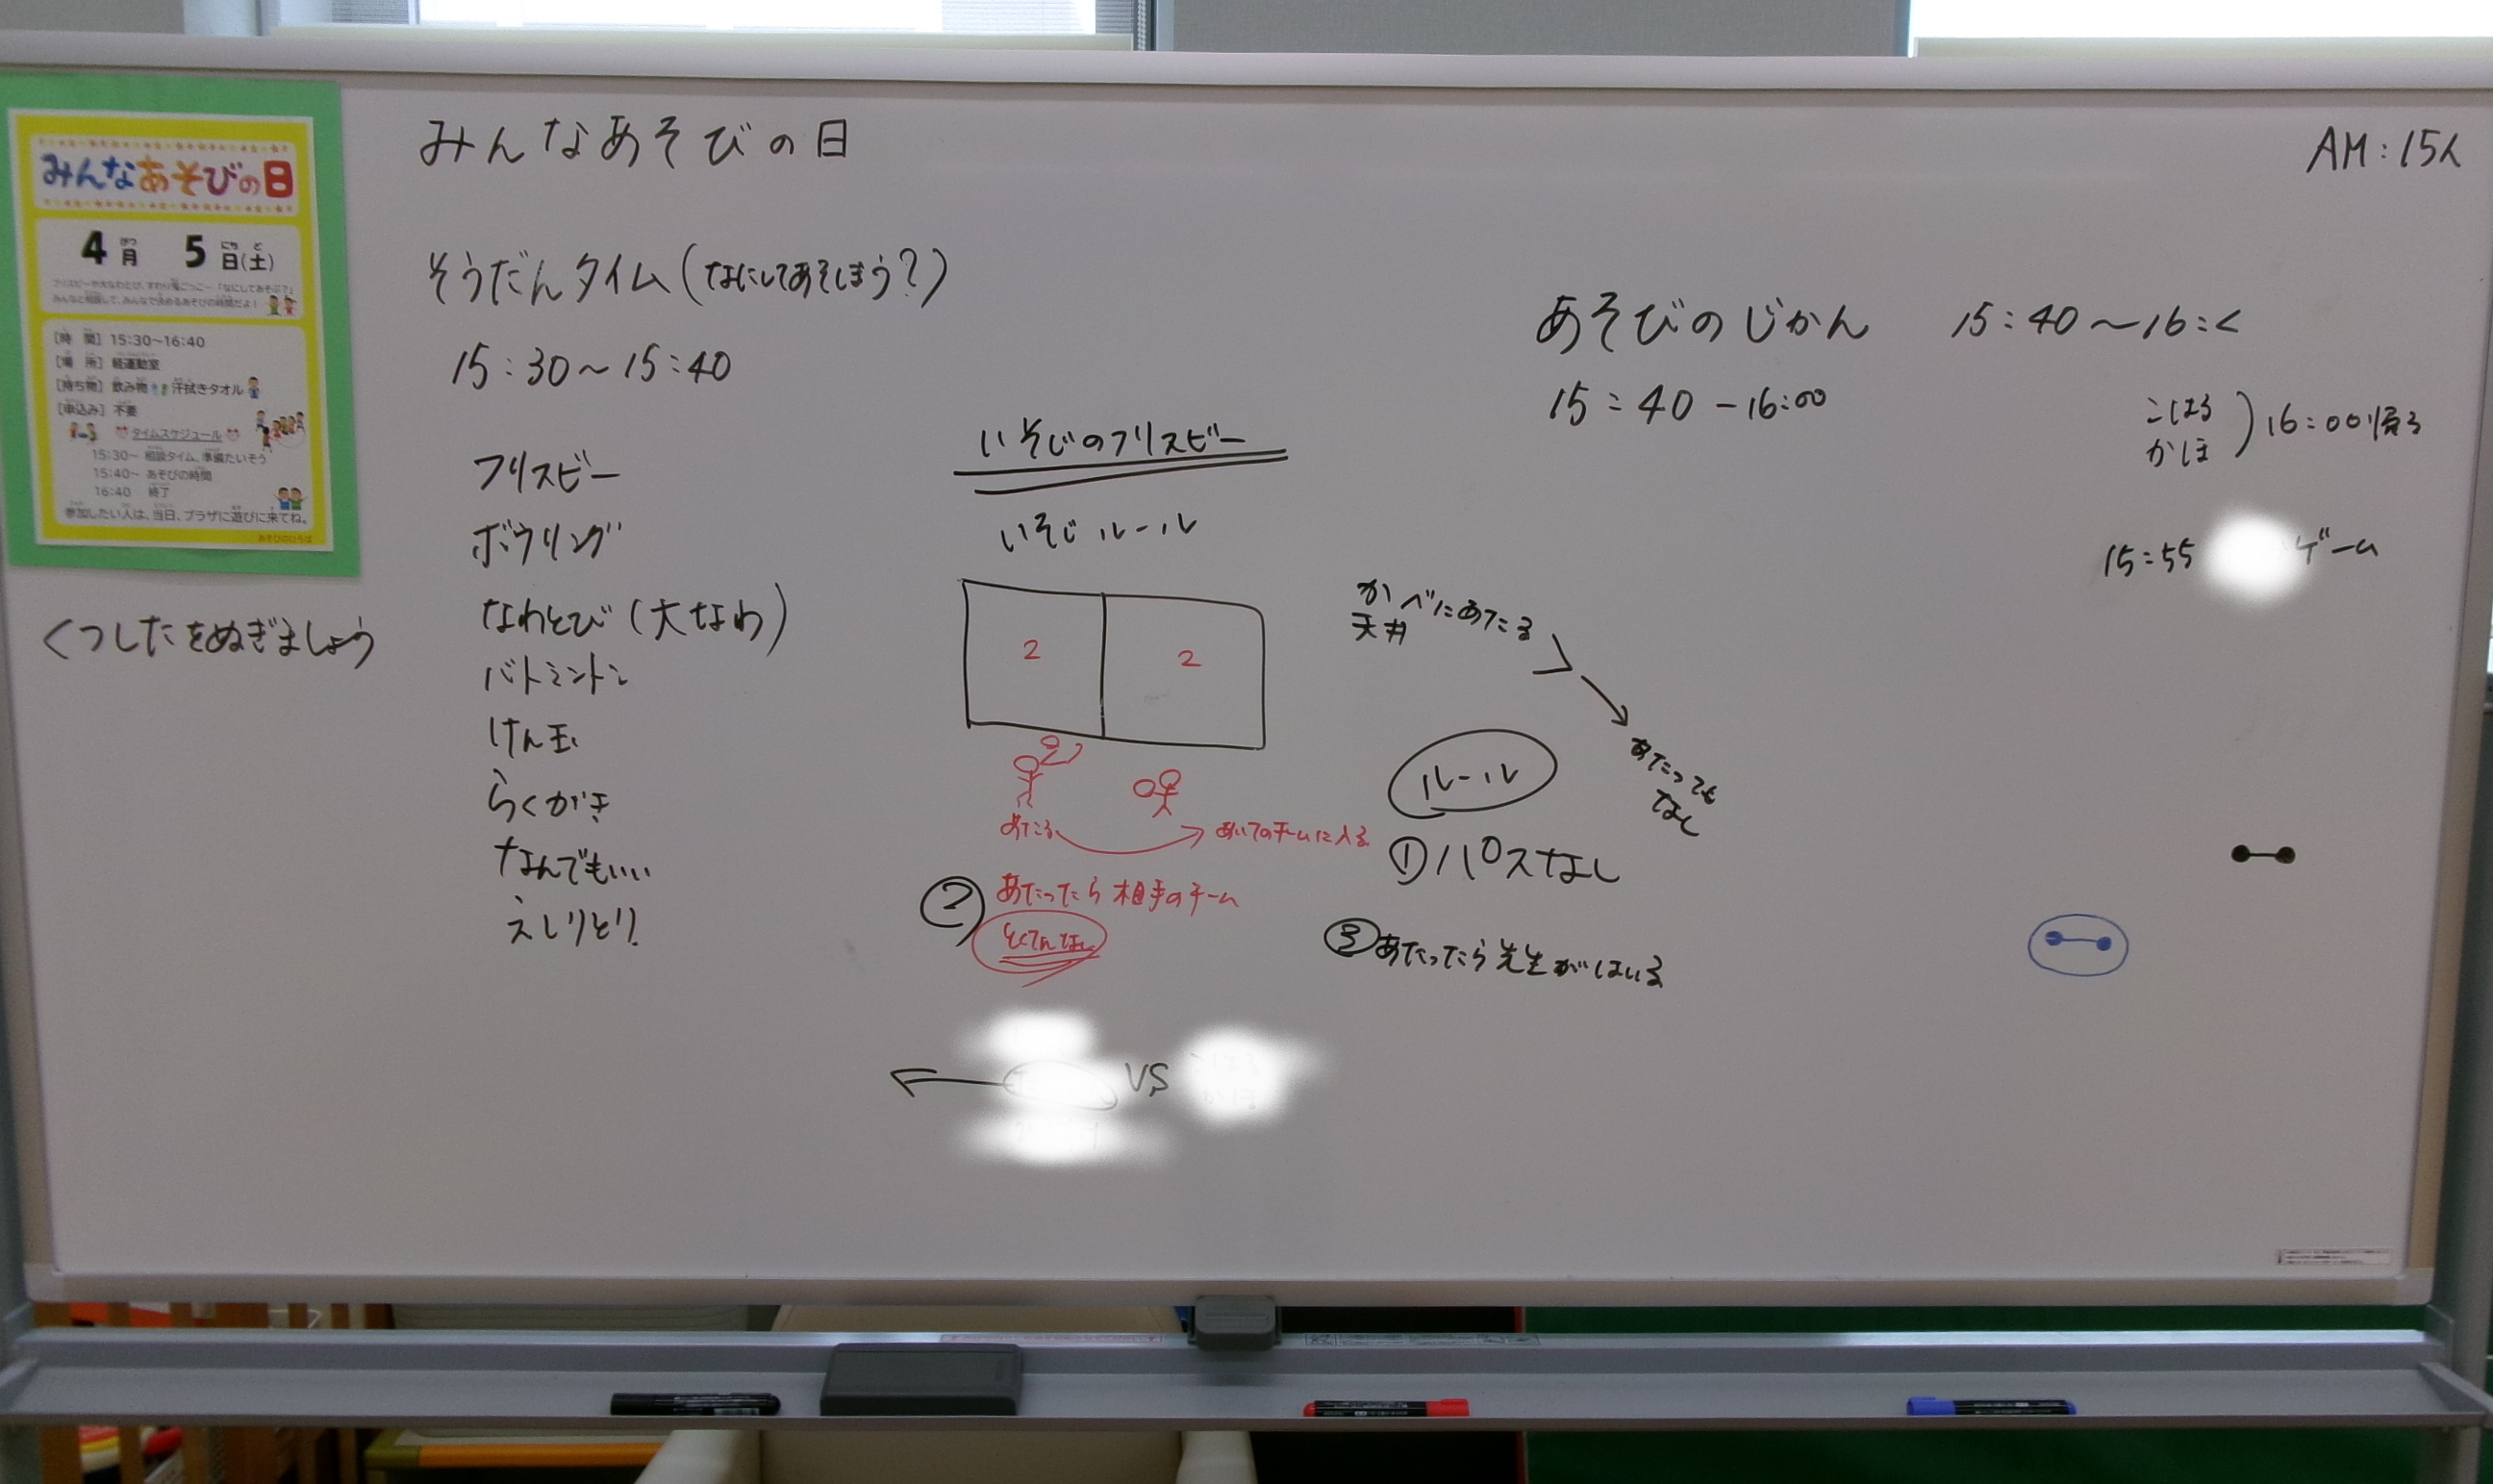 みんなあそびの日
4月 5日(土)
フリスビーや大なわとび、すわり鬼ごっこ…「なにしてあそぶ?」
みんなと相談して、みんなで決めるあそびの時間だよ!
[時 間] 15:30~16:40
[場 所] 軽運動室
[持ち物] 飲み物 汗拭きタオル
[申込み] 不要
タイムスケジュール
15:30~ 相談タイム、準備たいそう
15:40~ あそびの時間
16:40 終了
参加したい人は、当日、プラザに遊びに来てね。
あそびのひろば
くつしたをぬぎましょう
みんなあそびの日
そうだんタイム(なにしてあそぼう?)
15:30~15:40
フリスビー
ボウリング
なわとび(大なわ)
バトミントン
けん玉
らくがき
なんでもいい
えしりとり
いそじのフリスビー
いそじルール
2 2
あたる
あいてのチームに入る
② あたったら相手のチーム
とくてんなし
VS
かべにあたる
天井
あたっても
なし
ルール
①パスなし
③あたったら先生がはいる
AM:15人
あそびのじかん 15:40~16:
15:40-16:00
こはる
かほ
16:00帰る
15:55 ゲーム